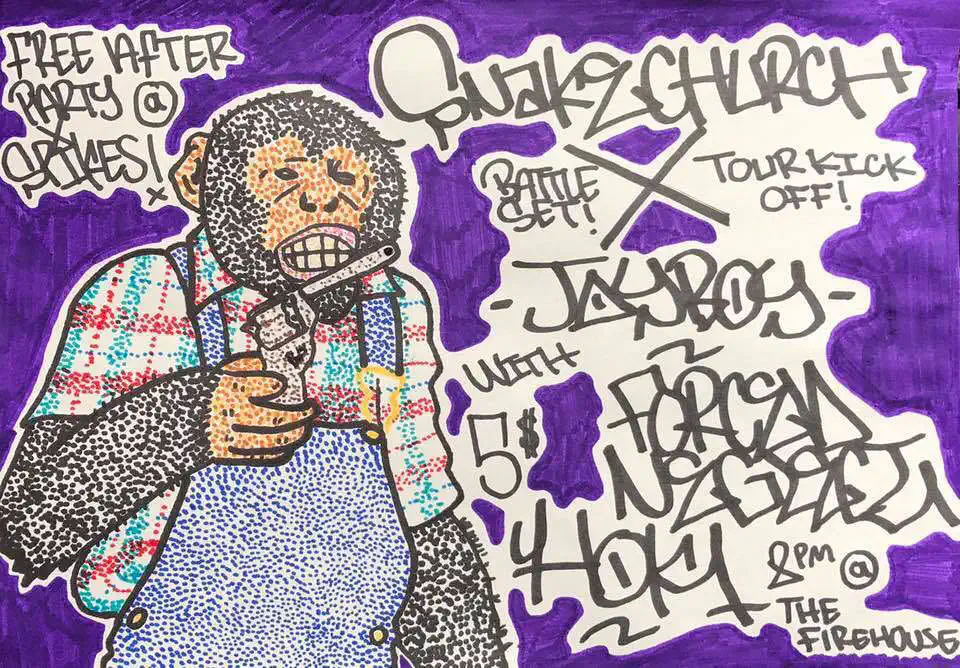 FREE AFTER
PARTY @
SPIKES!
SNAKECHURCH
X
BATTLE
SET!
TOUR KICK
OFF!
-JAYBOY-
WITH
5$
FORCED
NEGLECT
8PM @
THE
FIREHOUSE